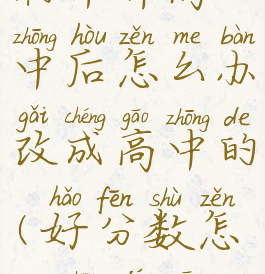 zhōng hòu zěn me bàn
中后怎么办
gǎi chéng gāo zhōng de
改成高中的
hǎo fēn shù zěn
(好分数怎